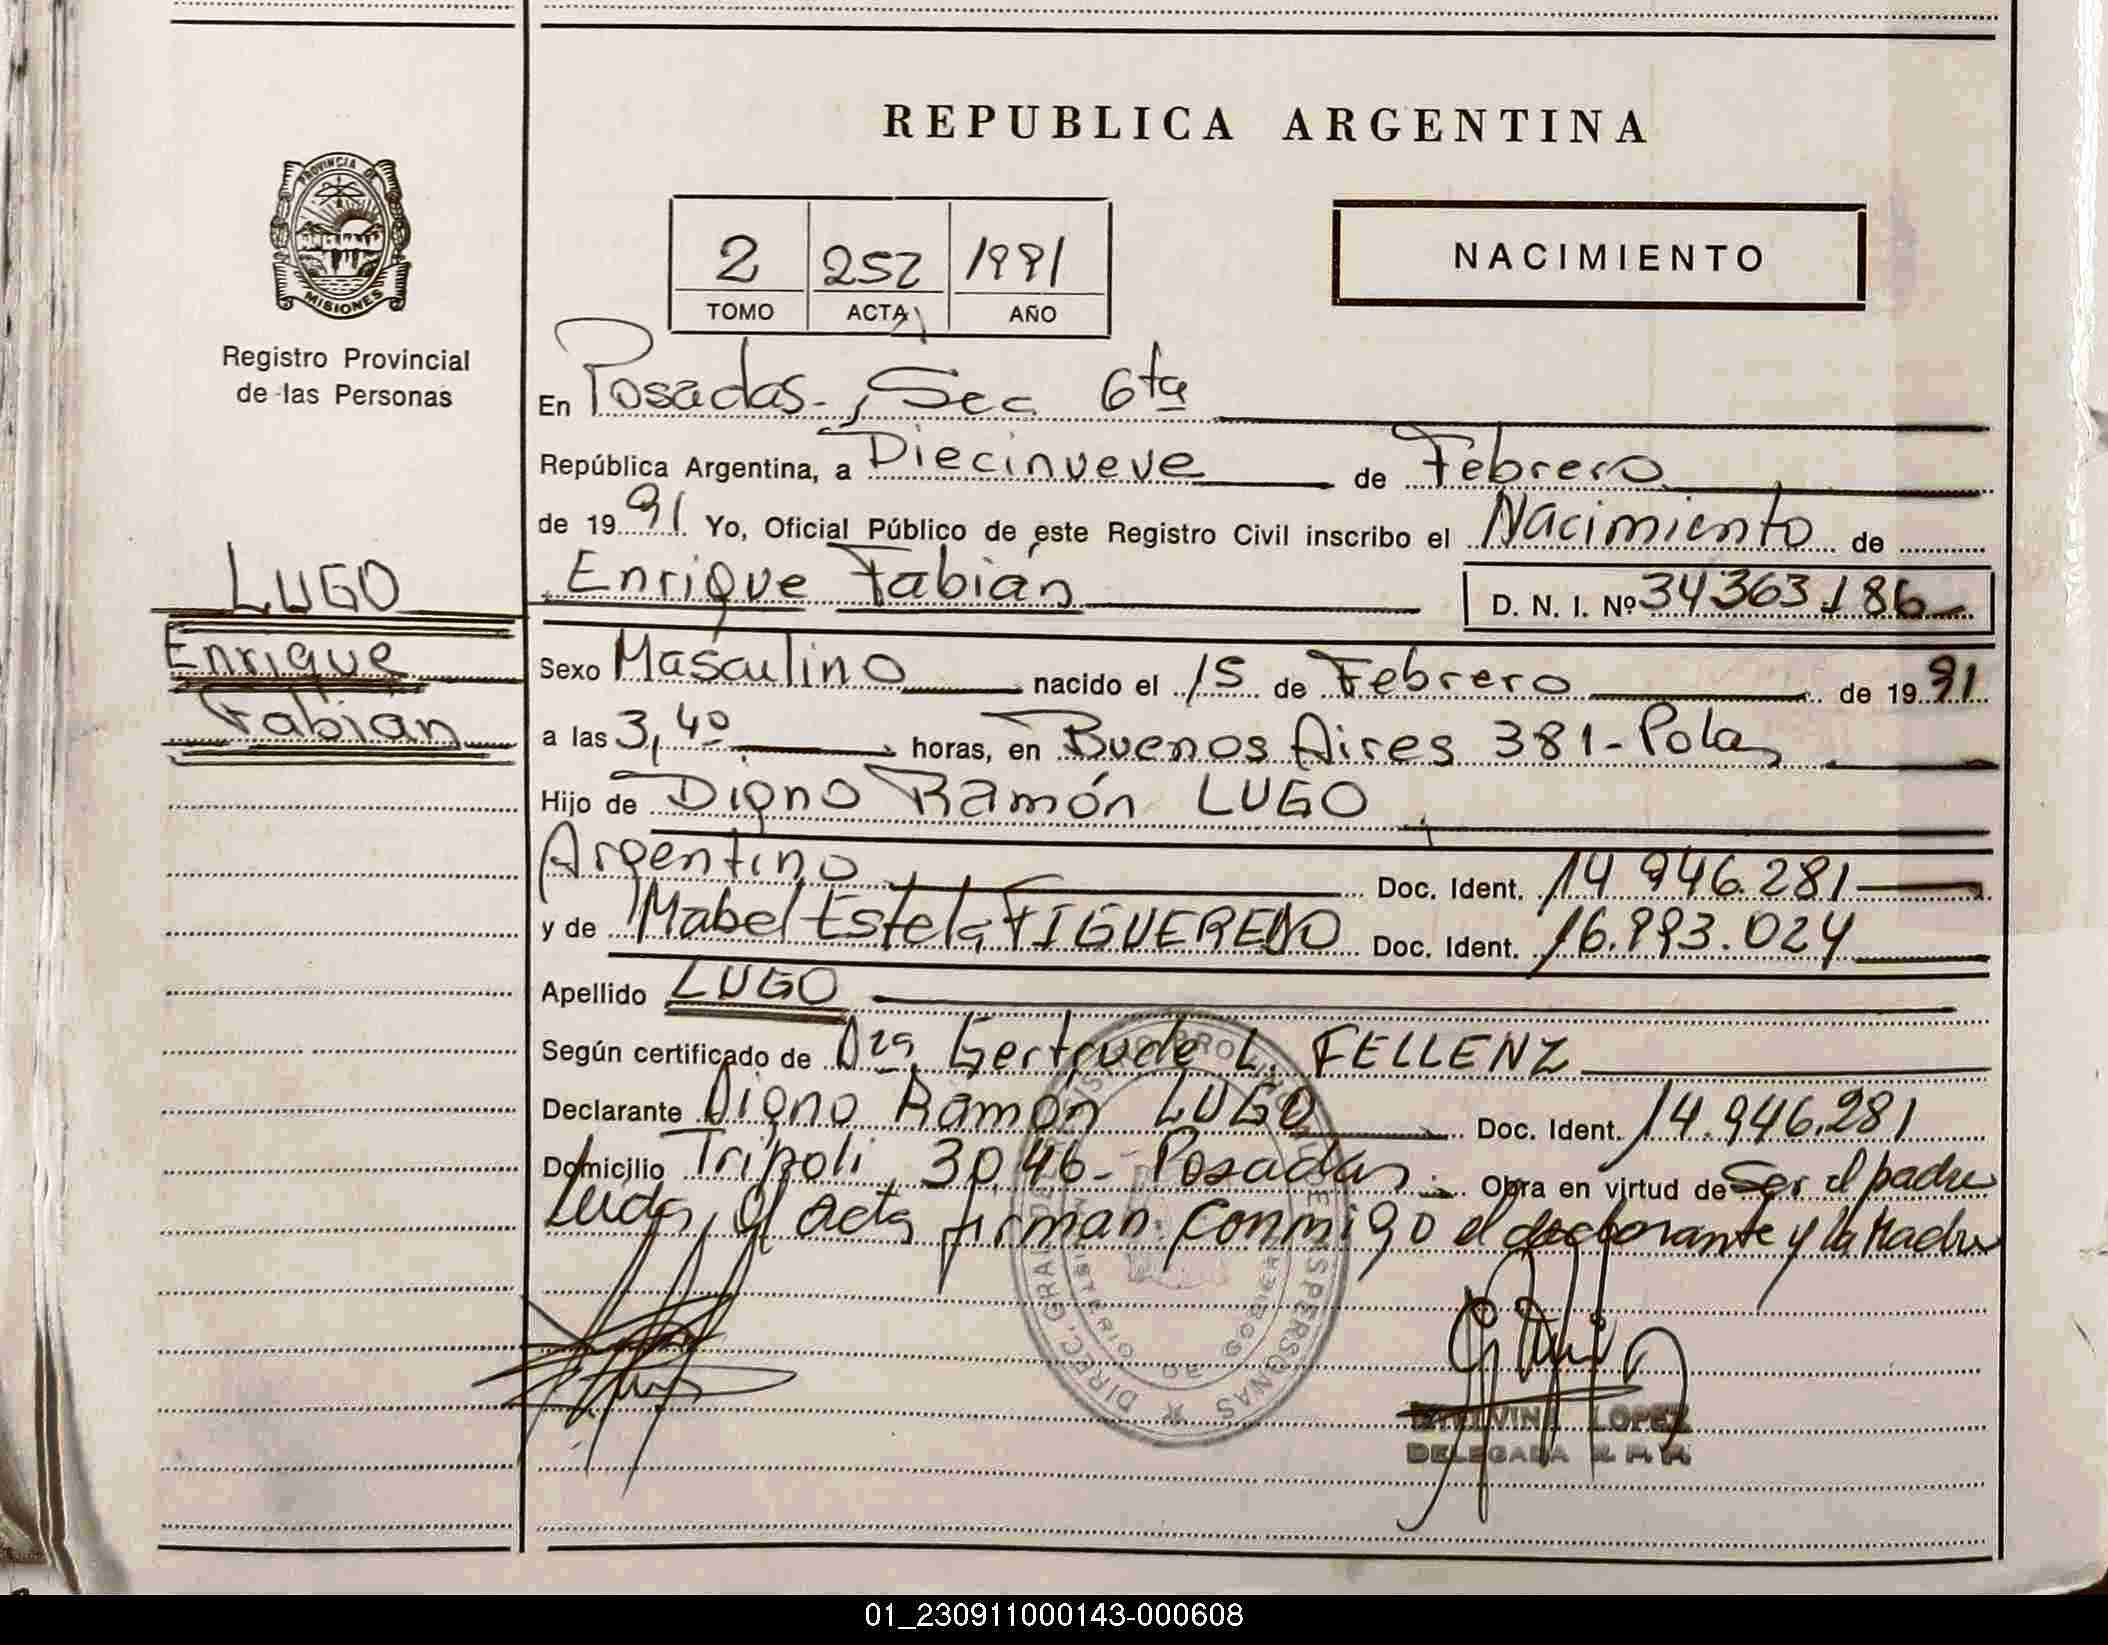 REPUBLICA ARGENTINA
PROVINCIA DE
MISIONES
Registro Provincial
de las Personas
NACIMIENTO
2 252 1991
TOMO ACTA AÑO
En Posadas-, Sec 6ta
República Argentina, a Diecinueve de Febrero
de 1991. Yo, Oficial Público de este Registro Civil inscribo el Nacimiento de
Enrique Fabián D. N. I. Nº 34363186
LUGO
Enrique
Fabián
Sexo Masculino nacido el 15 de Febrero de 1991
a las 3,40 horas, en Buenos Aires 381-Pdas
Hijo de Digno Ramón LUGO
Argentino Doc. Ident. 14.946.281
y de Mabel Estela FIGUEREDO Doc. Ident. 16.993.024
Apellido LUGO
Según certificado de Dra. Gertrude L. FELLENZ
Declarante Digno Ramón LUGO Doc. Ident. 14.946.281
Domicilio Tripoli 3046- Posadas Obra en virtud de Ser el padre
Leida el acta firman conmigo el declarante y la Madre
DIREC. GRAL. DE LAS PERSONAS
MINISTERIO DE GOBIERNO
LOPEZ
DELEGADA R. P. P.
01_230911000143-000608